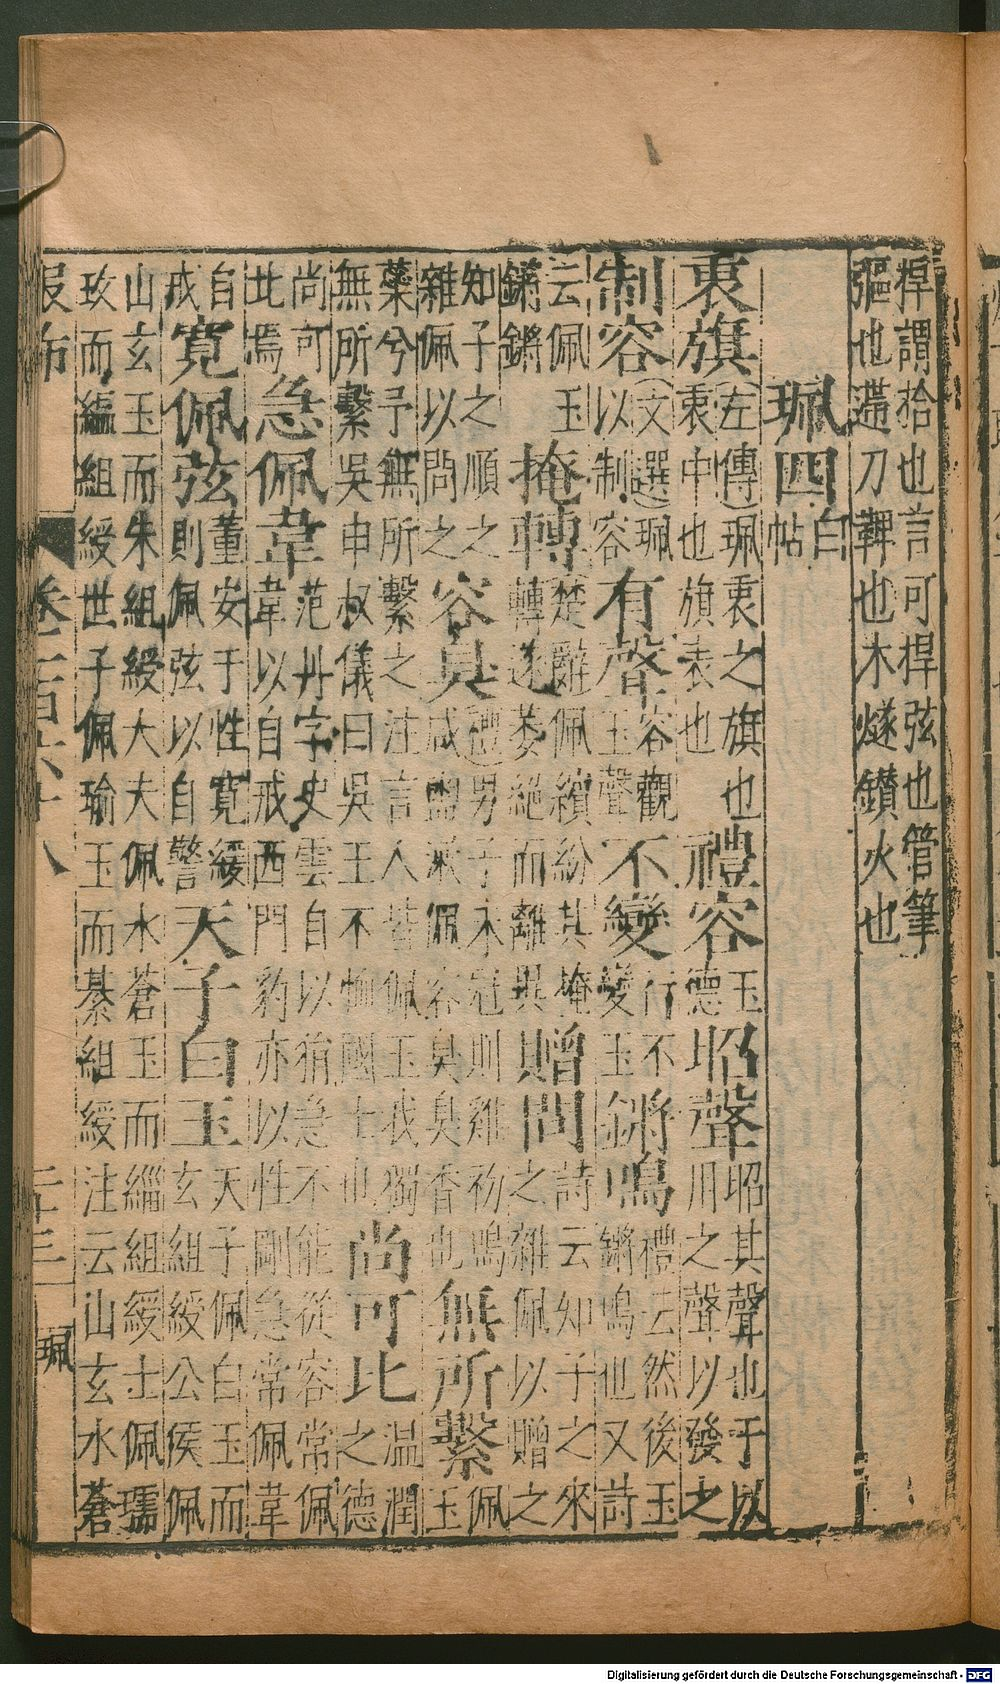 捍謂拾也言可捍弦也管筆
彄也遰刀鞞也木燧鑽火也
珮四白帖
衷旗左傳珮衷之旗也衷中也旗表也禮容玉德昭聲昭其聲也于以用之聲以發之
制容文選珮以制容有聲容觀玉聲不變行不變玉鏘鳴禮云然後玉鏘鳴也又詩
云佩玉鏘鏘掩轉楚辭佩繽紛其掩轉遂萎絕而離異贈問詩云知子之來之雜佩以贈之
知子之順之雜佩以問之容臭禮男子未冠則雞初鳴咸盥漱佩容臭臭香也無所繫佩玉
蘂兮予無所繫之注言人皆佩玉我獨無所繫吳申叔儀曰吳王不恤國士也尚可比温潤之德
尚可此焉急佩韋范丹字史雲自以狷急不能從容常佩韋以自戒西門豹亦以性剛急常佩韋
自戒寬佩弦董安于性寬緩則佩弦以自警天子白玉天子佩白玉而玄組綬公侯佩
山玄玉而朱組綬大夫佩水蒼玉而緇組綬士佩瓀
玫而縕組綬世子佩瑜玉而綦組綬注云山玄水蒼
卷一百六十八 二十三 珮
Digitalisierung gefördert durch die Deutsche Forschungsgemeinschaft - DFG